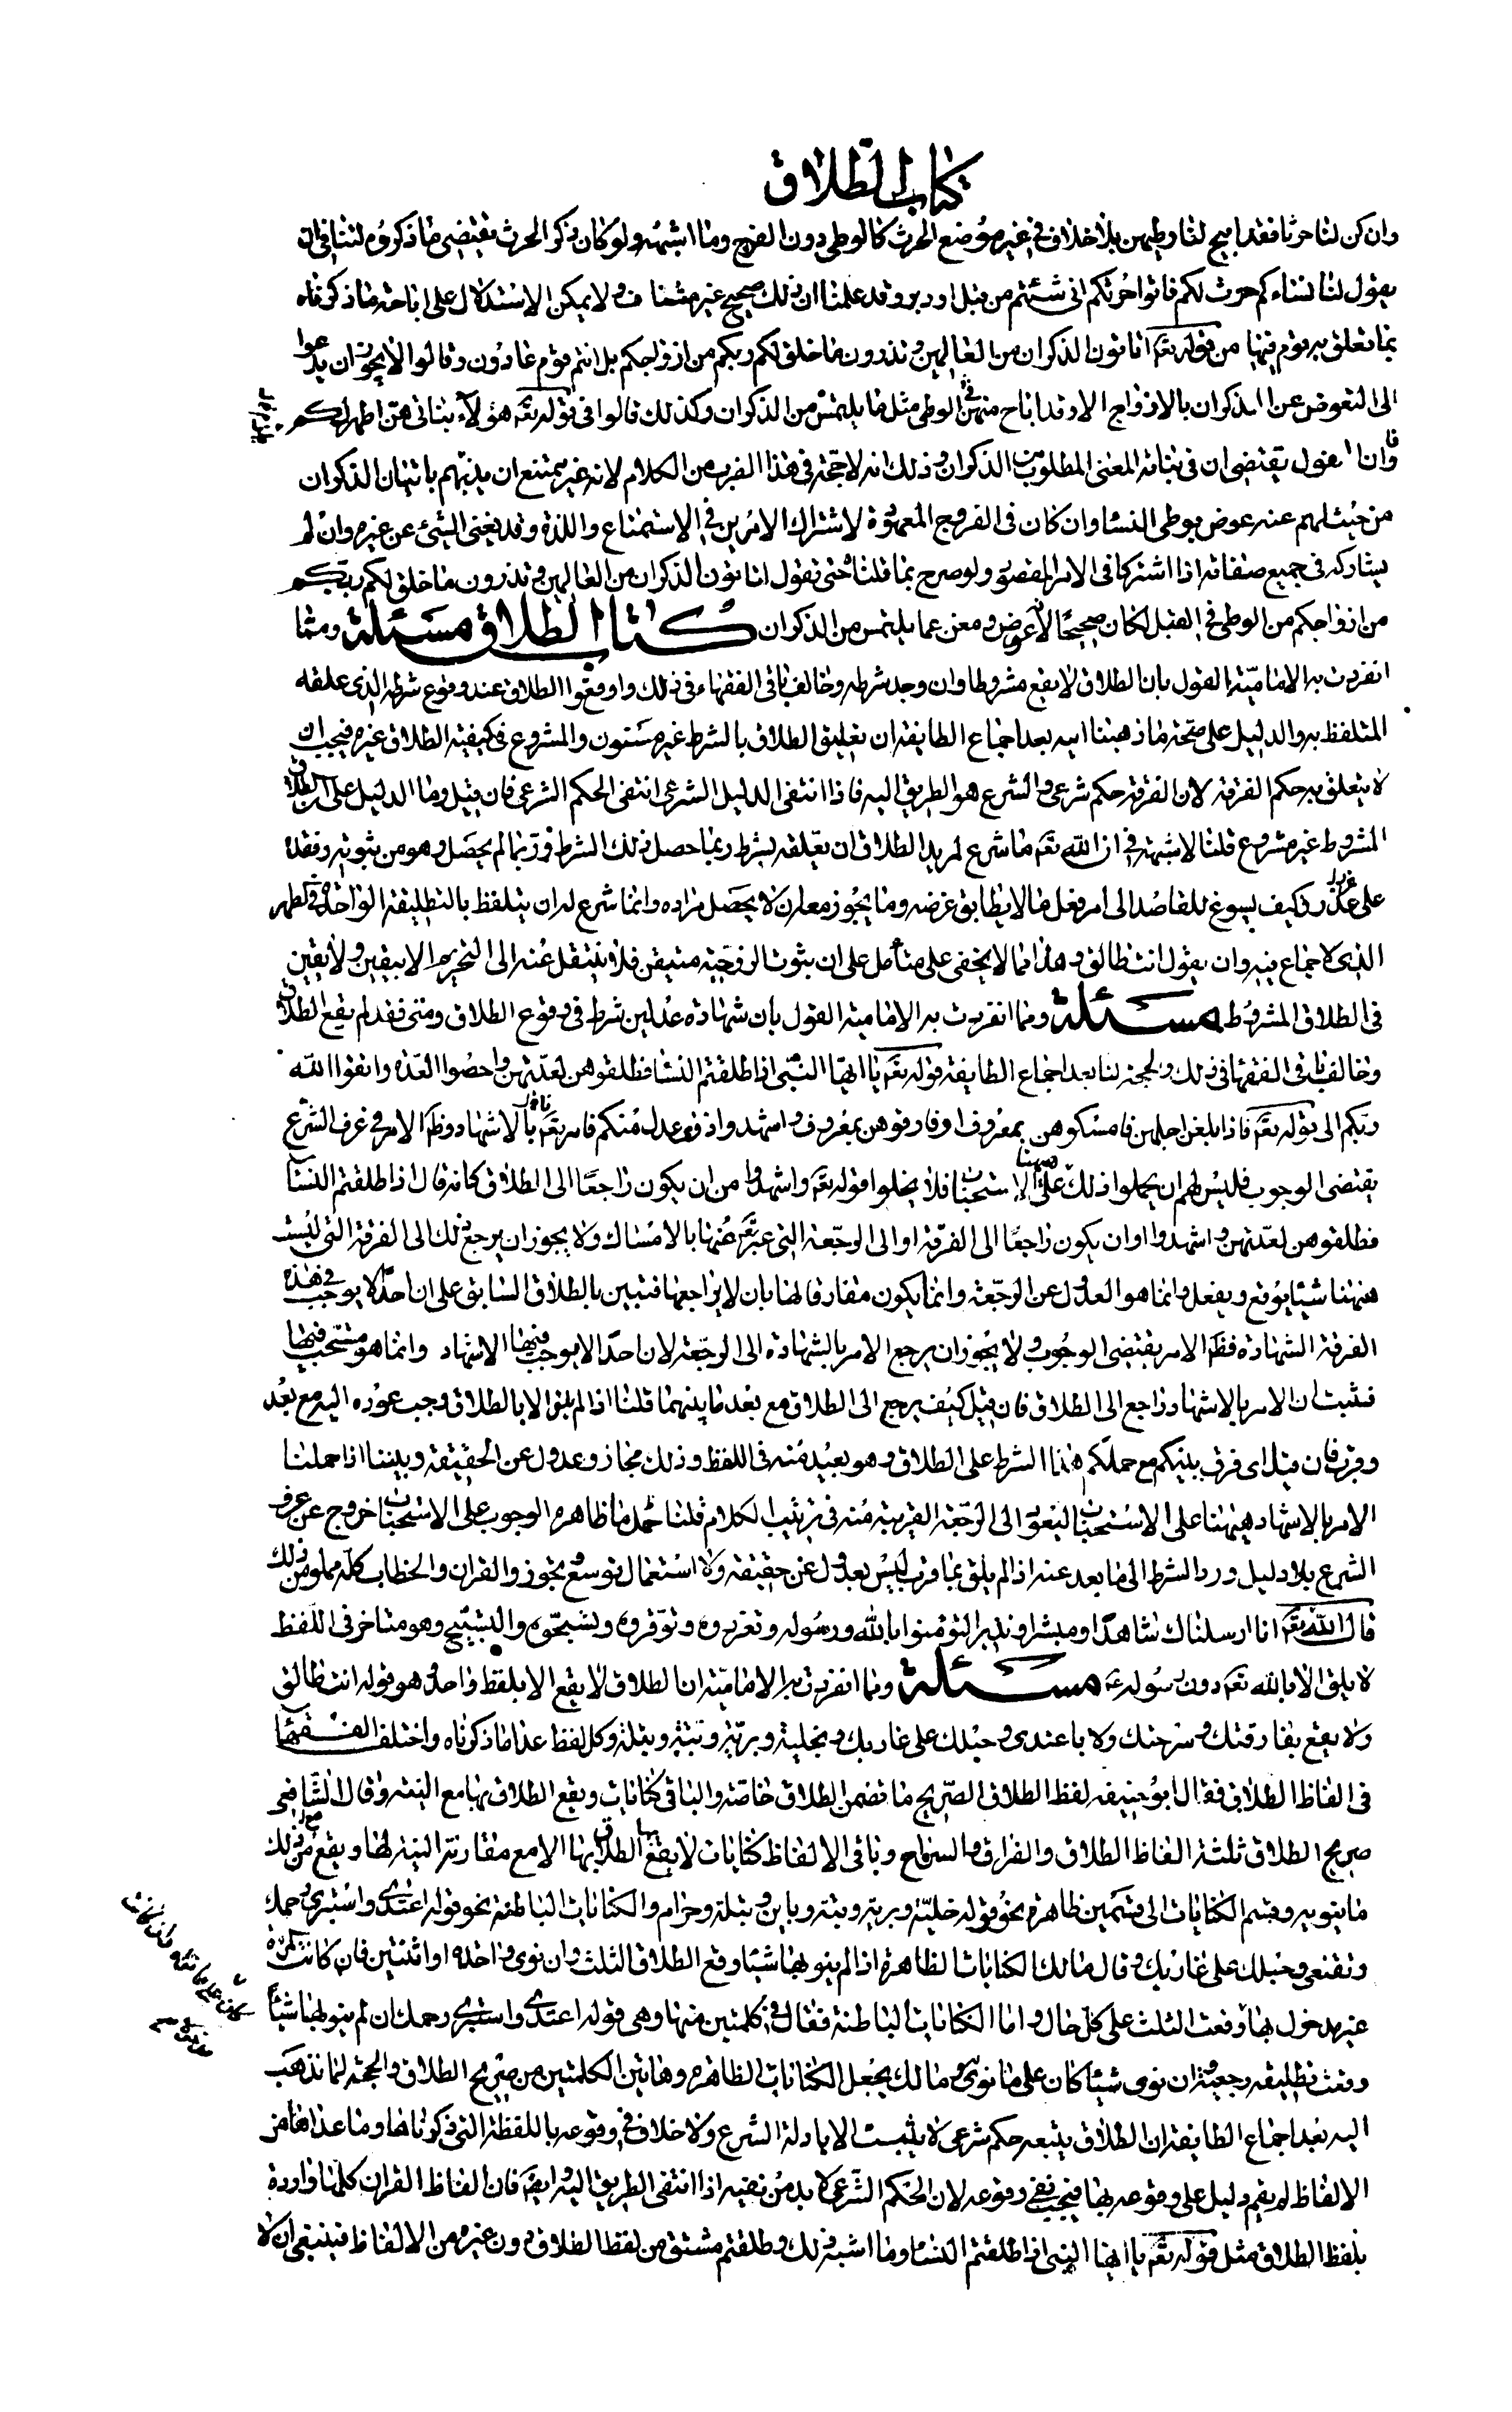 كتاب الطلاق
وان كن لنا حرثا فقد ابيح لنا وطيهن بلا خلاف فى غير موضع الحرث كالوطى دون الفرج وما اشبهه ولو كان ذكر الحرث يقتضى ما ذكروه لتنافى ان
يقول لنا نساءكم حرث لكم فاتوا حرثكم انى شئتم من قبل او دبر وقد علمنا ان ذلك صحيح غير متناف ولا يمكن الاستدلال على اباحة ما ذكرناه
بما تعلق به قوم فيها من قوله تعٰ اتاتون الذكران من العالمين وتذرون ما خلق لكم ربكم من ازواجكم بل انتم قوم عادون وقالوا لا يجوز ان يدعوا
الى التعوض عن الذكران بالازواج الا وقد اباح منهن فى الوطى مثل ما يلتمس من الذكران وكذلك قالوا فى قوله تعٰ هؤلآء بناتى هنّ اطهر لكم
وانا نقول يقتضى ان فى بناته المعنى المطلوب من الذكران وذلك انه لا حجّة فى هذا الضرب من الكلام لانه غير ممتنع ان يذمّهم باتيان الذكران
من حيث لهم عنه عوض بوطى النسا وان كان فى الفروج المعهودة لاشتراك الامرين فى الاستمتاع واللذة وقد يغنى الشئ عن غيره وان لم
يشاركه فى جميع صفاته اذا اشتركا فى الامر المقصود ولو صرح بما قلناه حتى تقول اتاتون الذكران من العالمين وتذرون ما خلق لكم ربكم
من ازواجكم من الوطى فى القبل لكان صحيحًا لانه عوض ومغن عما يلتمس من الذكران كتاب الطلاق مسئلة ومما
انفردت به الاماميّة القول بان الطلاق لا يقع مشروطا وان وجد شرطه وخالف باقى الفقهاء فى ذلك واوقعوا الطلاق عند وقوع شرطه الذى علقه
المتلفظ به والدليل على صحّة ما ذهبنا اليه بعد اجماع الطايفة ان تعليق الطلاق بالشرط غير مسنون والمشروع فى كيفية الطلاق غيره فيجب ان
لا يتعلق به حكم الفرقة لان الفرقة حكم شرعى والشرع هو الطريق اليه فاذا انتفى الدليل الشرعى انتفى الحكم الشرعى فان قيل وما الدليل على ان الطلاق
المشروط غير مشروع قلنا لا شبهة فى ان الله تعٰ ما شرع لمريد الطلاق ان يعلقه بشرط ربما حصل ذلك الشرط وربما لم يحصل وهو من ثبوته وفقده
على غرر فكيف يسوغ للقاصد الى امر فعل ما لا يطابق غرضه وما يجوز معه ان لا يحصل مراده وانما شرع له ان يتلفظ بالتطليقة الواحدة فى طهر
الذى لا جماع فيه وان يقول انت طالق وهذا مما لا يخفى على متأمل على ان ثبوت الزوجيّة متيقن فلا ننتقل عنه الى التحريم الا بيقين ولا يقين
فى الطلاق المشروط مسئلة ومما انفردت به الامامية القول بان شهادة عدلين شرط فى وقوع الطلاق ومتى فقد لم يقع الطلاق
وخالف باقى الفقها فى ذلك والحجة لنا بعد اجماع الطايفة قوله تعٰ يا ايها النبى اذا طلقتم النسا فطلقوهن لعدّتهن واحصوا العدّة واتقوا الله
ربكم الى قوله تعٰ فاذا بلغن اجلهن فامسكوهن بمعروف او فارقوهن بمعروف واشهدوا ذوى عدل منكم فامر تعٰ بالاشهاد وظٰ الامر فى عرف الشرع
يقتضى الوجوب فليس لهم ان يحملوا ذلك ههنا على الاستحباب فلا يخلوا قوله تعٰ واشهدوا من ان يكون راجعًا الى الطلاق كانه قال اذا طلقتم النسآ
فطلقوهن لعدّتهن واشهدوا او ان يكون راجعًا الى الفرقة او الى الرجعة التى عبر تعٰ عنها بالامساك ولا يجوز ان يرجع ذلك الى الفرقة التى ليست
ههنا شيئا يوقع ويفعل وانما هو العدول عن الرجعة وانما يكون مفارقا لها بان لا يراجعها فتبين بالطلاق السابق على ان احدًا لا يوجب فى هذه
الفرقة الشهادة فظٰ الامر يقتضى الوجوب ولا يجوز ان يرجع الامر بالشهادة الى الرجعة لان احدًا لا يوجب فيها الاشهاد وانما هو مستحب فيها
فثبت ان الامر بالاشهاد راجع الى الطلاق فان قيل كيف يرجع الى الطلاق مع بعد ما بينهما قلنا اذا لم يلق الا بالطلاق وجب عوده اليه مع بعد
وقرب فان قيل اى فرق بينكم مع حملكم هذا الشرط على الطلاق وهو بعيد منه فى اللفظ وذلك مجاز وعدول عن الحقيقة وبيننا اذا حملنا
الامر بالاشهاد ههنا على الاستحباب ليعود الى الرجعة القريبة منه فى ترتيب الكلام قلنا حمل ما ظاهره الوجوب على الاستحباب خروج عن عرف
الشرع بلا دليل ورد الشرط الى ما بعد عنه اذا لم يلق بما قرب ليس بعدول عن حقيقة ولا استعمال توسع وتجوز والقران والخطاب كلّه مملو من ذلك
قال الله تعٰ انا ارسلناك شاهدًا ومبشرا ونذيرا لتؤمنوا بالله ورسوله وتعزروه وتوقروه وتسبحوه والتسبيح وهو متاخر فى اللفظ
لا يليق الا بالله تعٰ دون رسوله ع مسئلة ومما انفردت به الاماميّة ان الطلاق لا يقع الا بلفظ واحد وهو قوله انت طالق
ولا يقع بفارقتك وسرحتك ولا باعتدى وحبلك على غاربك وبخلية وبريّة وبتة وبتلة وكل لفظ عدا ما ذكرناه واختلف الفقهآ
فى الفاظ الطلاق فقال ابو حنيفة لفظ الطلاق الصريح ما تضمن الطلاق خاصّة والباقى كنايات ويقع الطلاق بها مع النية وقال الشافعى
صريح الطلاق ثلثة الفاظ الطلاق والفراق والسراح وباقى الالفاظ كنايات لا يقع الطلاق بها الا مع مقارنة النية لها ويقع من ذلك
ما ينويه وقسم الكنايات الى قسمين ظاهرة نحو قوله خليّة وبرية وبتة وباين وبتلة وحرام والكنايات الباطنة نحو قوله اعتدى واستبرى رحمك
وتقنعى وحبلك على غاربك وقال مالك الكنايات الظاهرة اذا لم ينو بها شيئا وقع الطلاق الثلث وان نوى واحدة او اثنتين فان كانت
غير مدخول بها وقعت الثلث على كلّ حال واما الكنايات الباطنة فقال فى كلمتين منها وهى قوله اعتدى واستبرى رحمك ان لم ينو بها شيئا
وقعت تطليقة رجعية وان نوى شيئا كان على ما نوى ومالك يجعل الكنايات الظاهرة وهاتين الكلمتين من صريح الطلاق والحجّة لما نذهب
اليه بعد اجماع الطايفة ان الطلاق يتبعه حكم شرعى لا يثبت الا بادلة الشرع ولا خلاف فى وقوعه باللفظة التى ذكرناها وما عداها من
الالفاظ لم يقم دليل على وقوعه بها فيجب نفى وقوعه لان الحكم الشرعى لا بد من نفيه اذا انتفى الطريق اليه وايضٰ فان الفاظ القران كلّها واردة
بلفظ الطلاق مثل قوله تعٰ يا ايها النبى اذا طلقتم النسا وما اشبه ذلك وطلقتم مشتق من لفظ الطلاق دون غيره من الالفاظ فينبغى ان لا